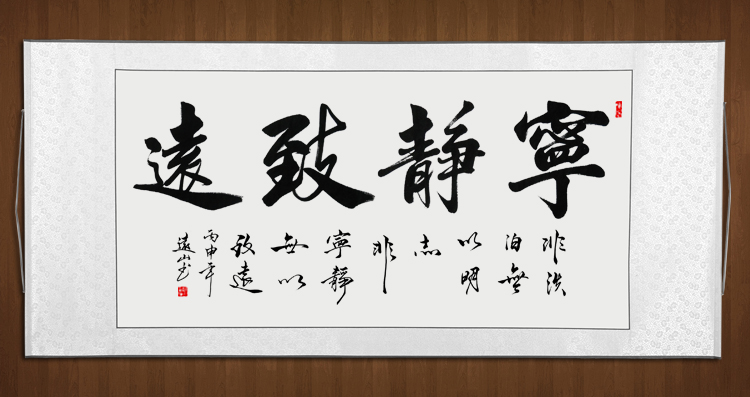 寧靜致遠
非淡
泊無
以明
志
非
寧靜
無以
致遠
丙申年
遠山書